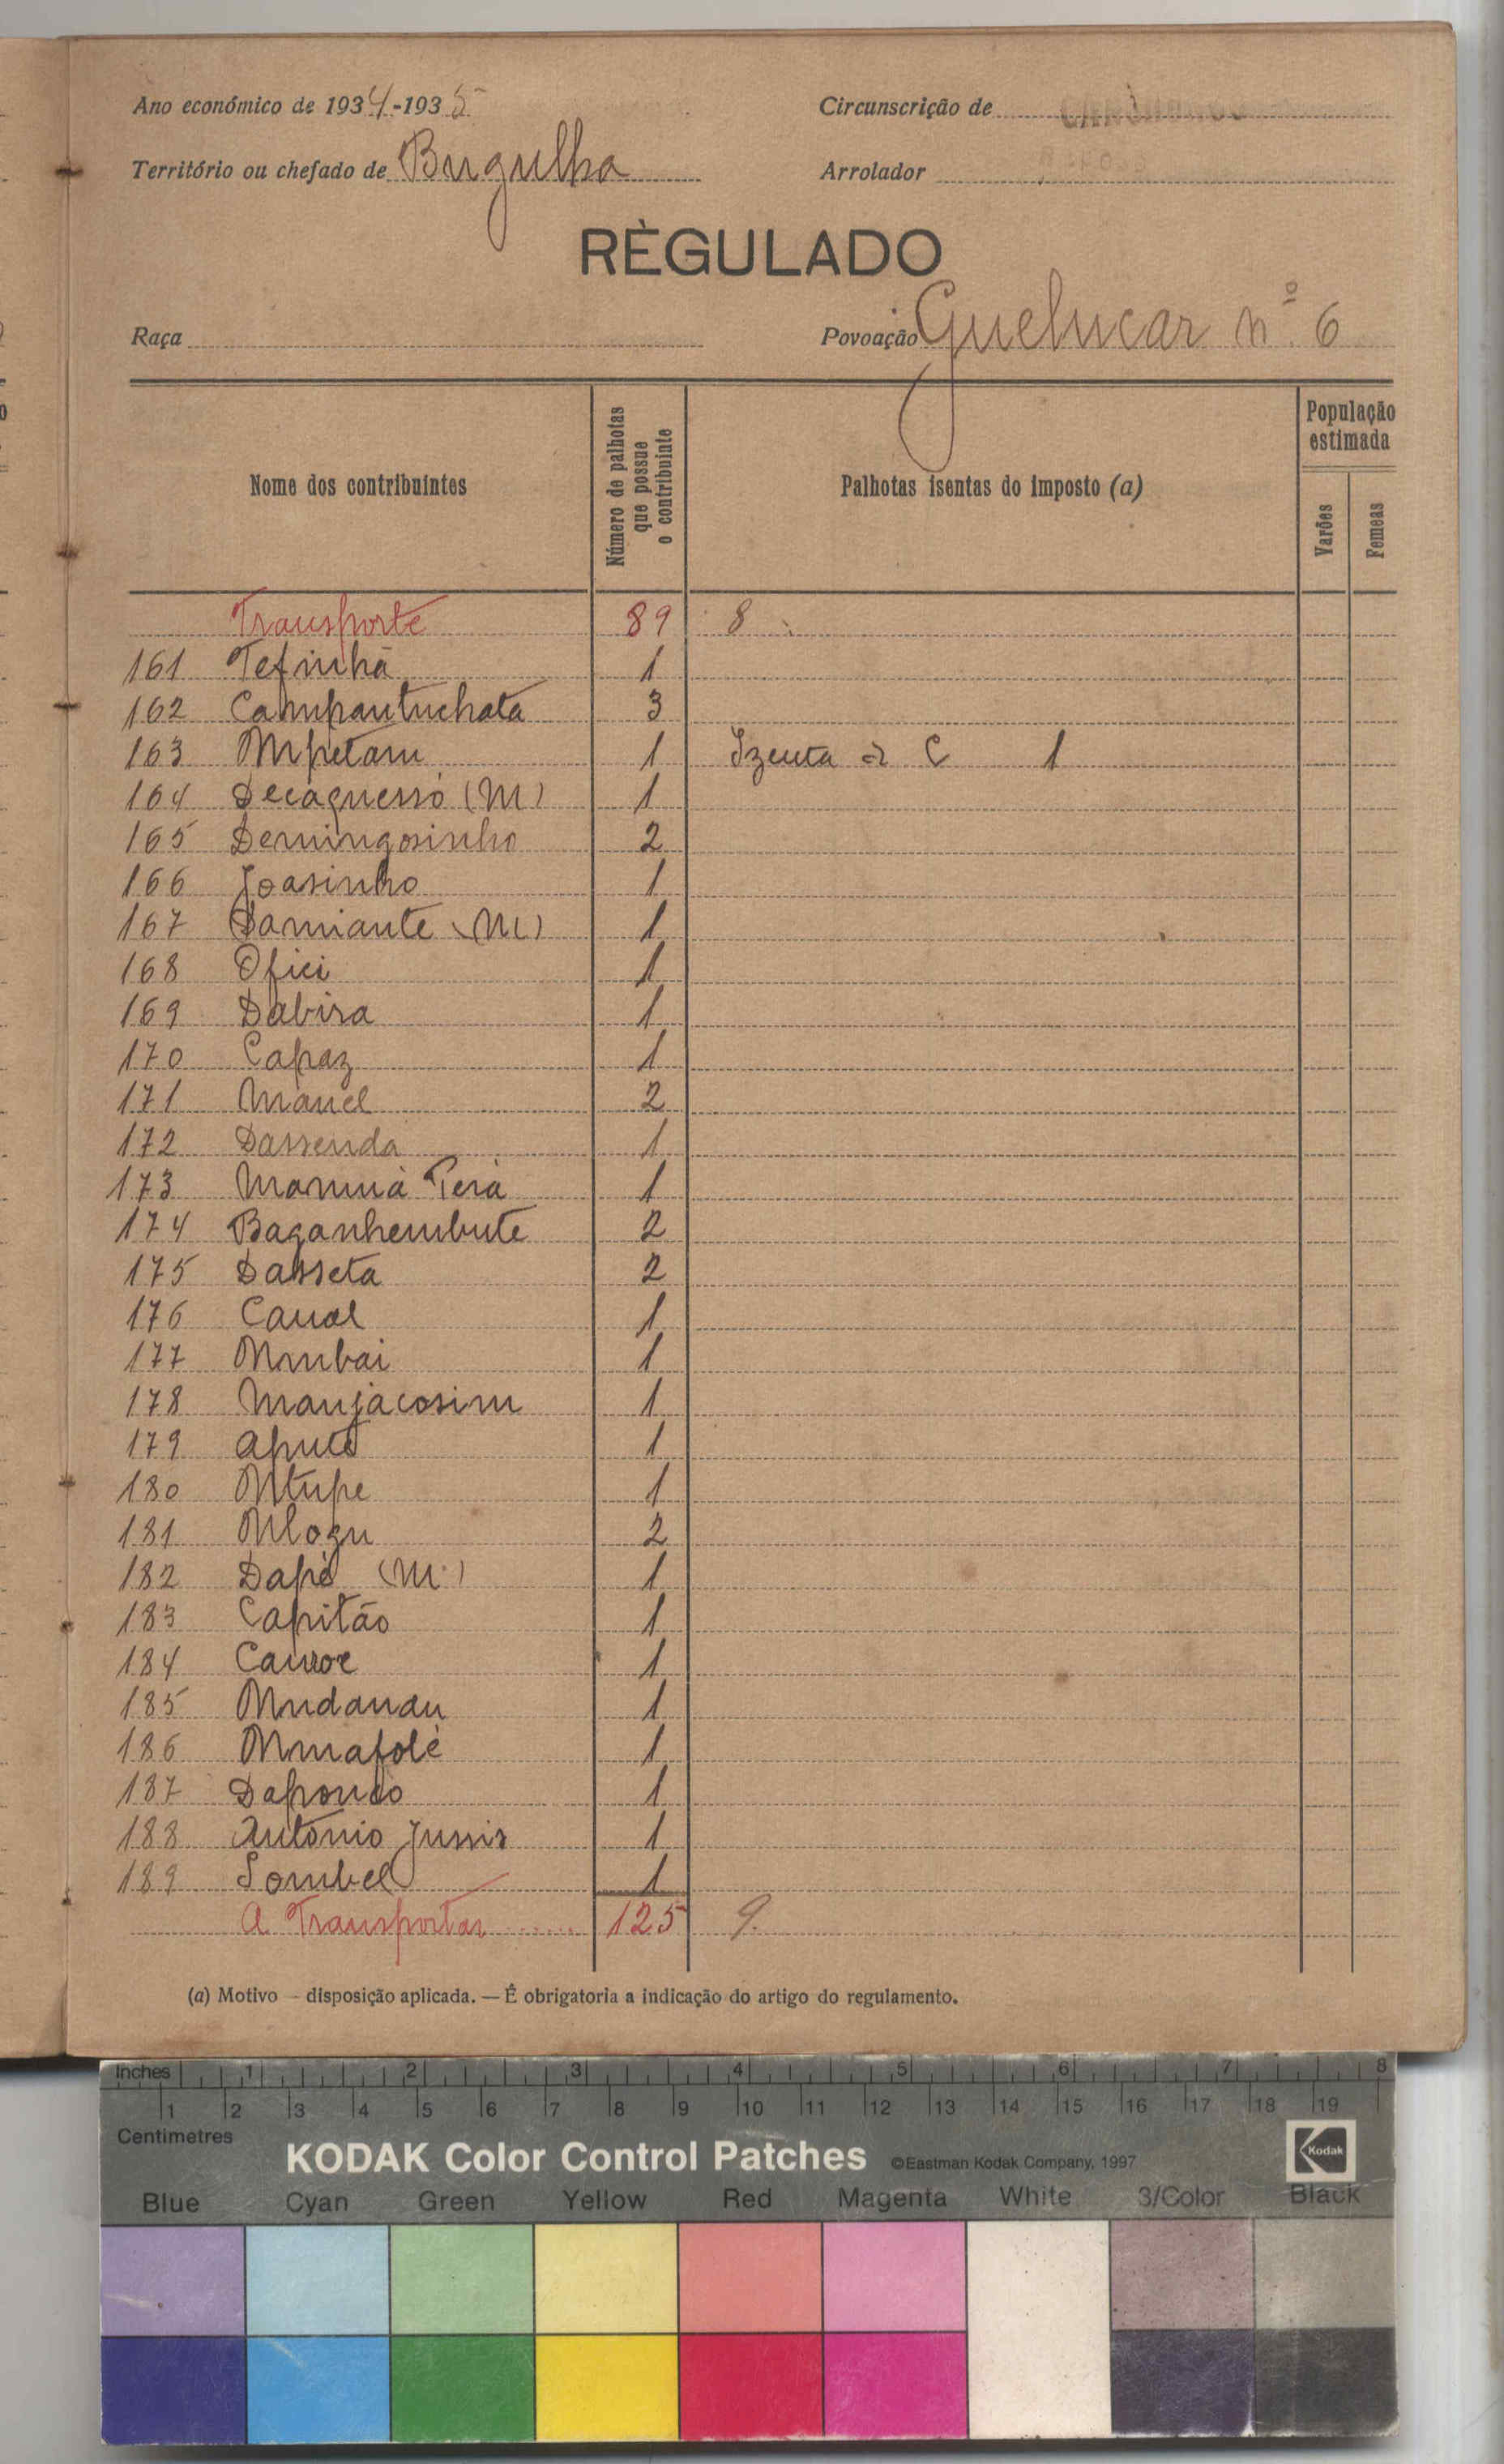 Ano económico de 1934-1935
Circunscrição de
Território ou chefado de Bugulha
Arrolador
RÈGULADO
Raça
Povoação Guelucar nº 6
Nome dos contribuintes
Número de palhotas que possue o contribuinte
Palhotas isentas do imposto (a)
População estimada
Varões
Femeas
Transporte 89 8
161 Tefinhã 1
162 Campantuchata 3
163 Mpetam 1 Izenta C 1
164 Decaguessó (M) 1
165 Demingosinho 2
166 Joasinho 1
167 Damiante (M) 1
168 Ofici 1
169 Dabira 1
170 Capaz 1
171 Manel 2
172 Dassenda 1
173 Mamuà Perà 1
174 Baganhembute 2
175 Dasseta 2
176 Canal 1
177 Mmbai 1
178 Manjacosim 1
179 1
180 Mtupe 1
181 Mlogu 2
182 Dapè (M) 1
183 Capitão 1
184 1
185 Mudandu 1
186 Mmafolé 1
187 1
188 António 1
189 Sombel 1
A Transportar 125 9
(a) Motivo – disposição aplicada. — É obrigatoria a indicação do artigo do regulamento.
Inches 1 2 3 4 5 6 7 8
1 2 3 4 5 6 7 8 9 10 11 12 13 14 15 16 17 18 19
Centimetres
KODAK Color Control Patches ©Eastman Kodak Company, 1997 Kodak
Blue Cyan Green Yellow Red Magenta White 3/Color Black